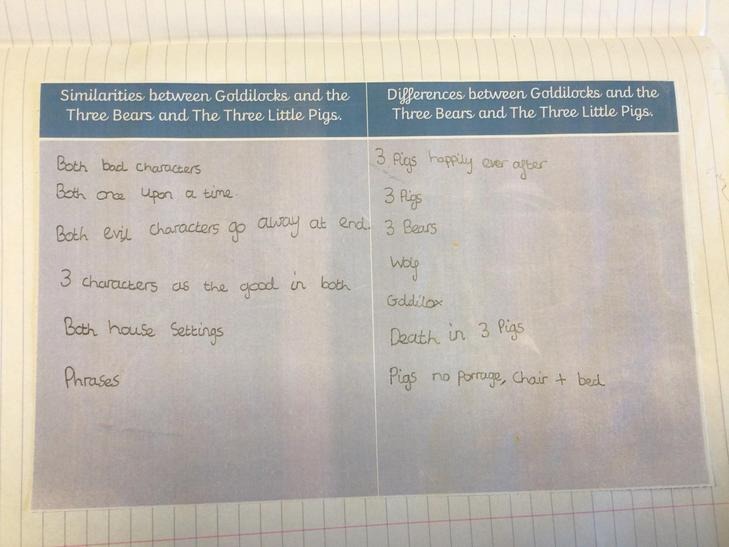 Similarities between Goldilocks and the
Three Bears and The Three Little Pigs.
Both bad characters
Both once upon a time.
Both evil characters go away at end.
3 characters as the good in both
Both house settings
Phrases
Differences between Goldilocks and the
Three Bears and The Three Little Pigs.
3 Pigs happily ever after
3 Pigs
3 Bears
Wolf
Goldilox
Death in 3 Pigs
Pigs no porrage, chair + bed